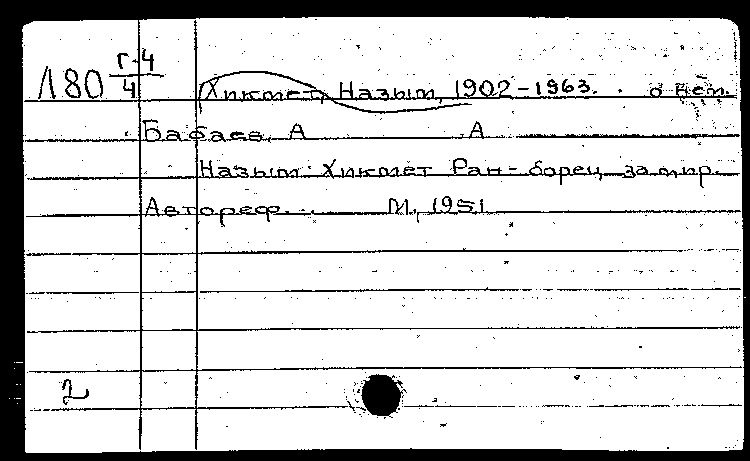 180 Г-4/4
Хикмет, Назым, 1902-1963. о нем.
Бабаев, А А
Назым Хикмет Ран - борец за мир.
Автореф. М., 1951
2